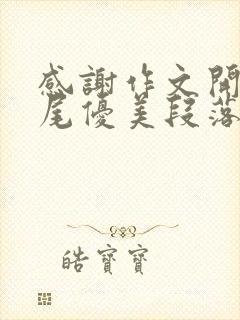 感謝作文開
尾優美段落
皓寶寶